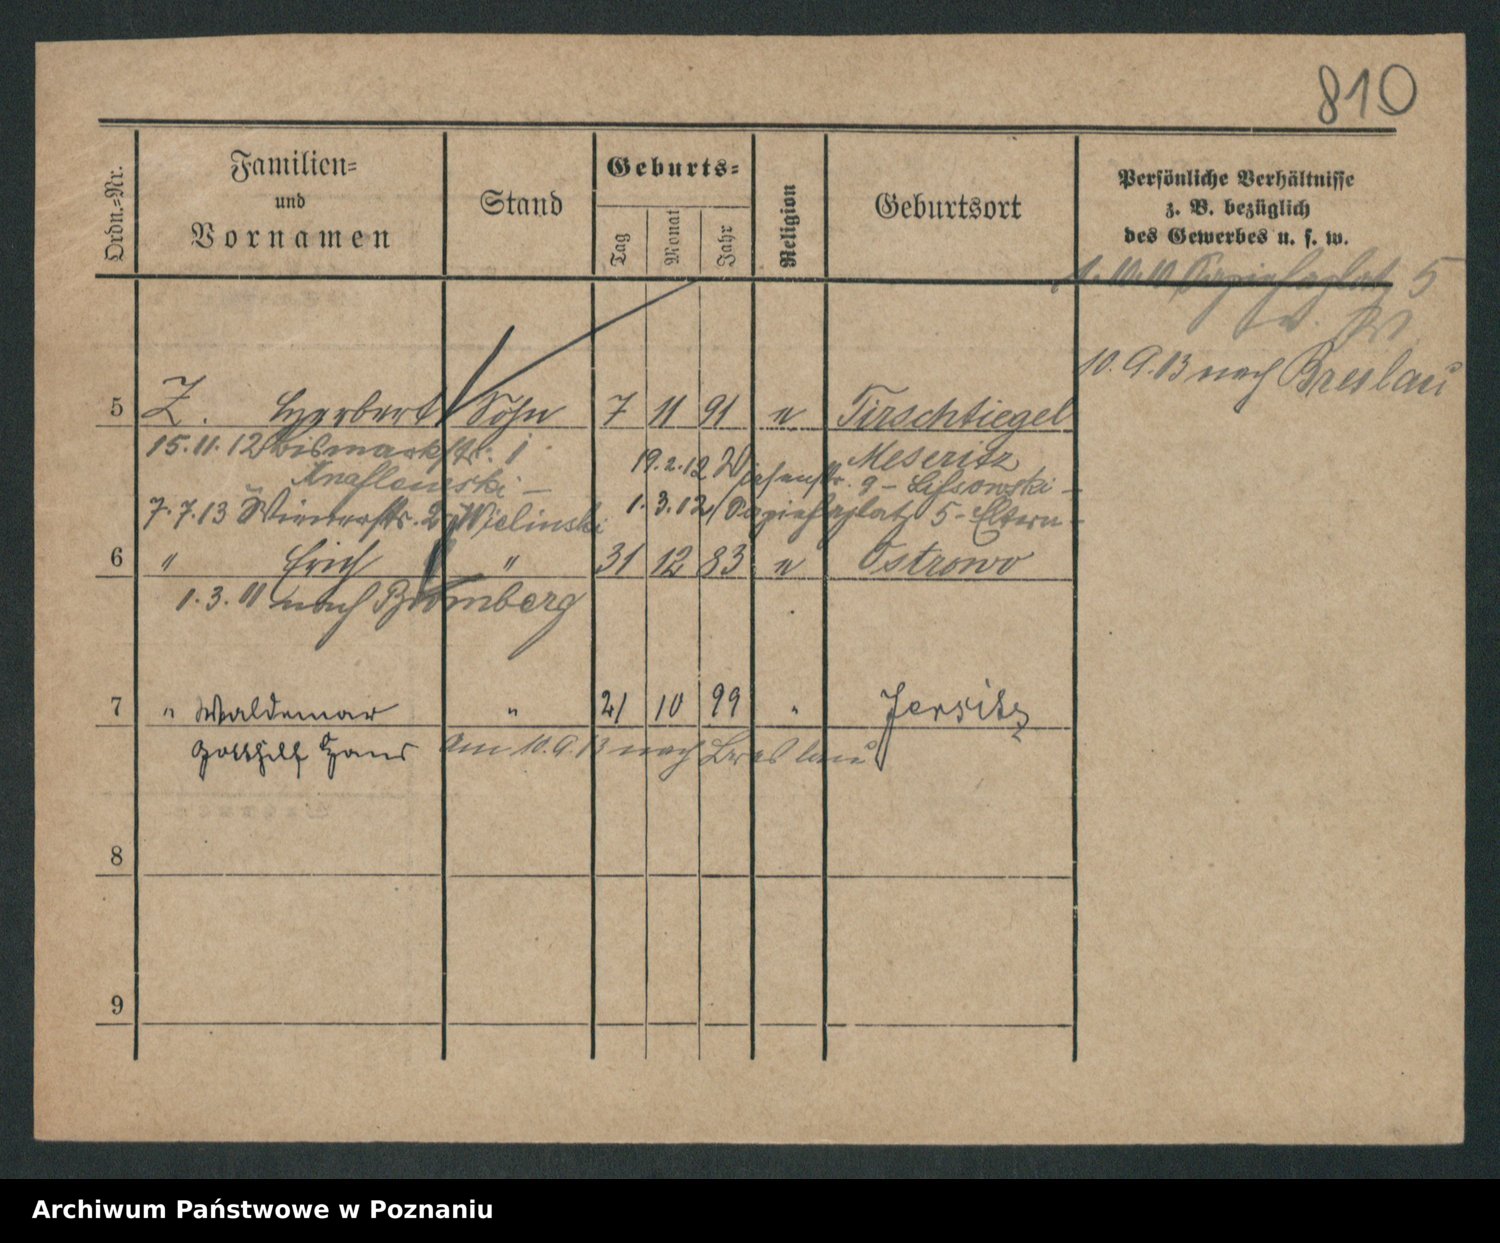 810
Ordn.-Nr.
Familien-
und
Vornamen
Stand
Geburts-
Tag
Monat
Jahr
Religion
Geburtsort
Persönliche Verhältnisse
z. B. bezüglich
des Gewerbes u. s. w.
1. 10. 10 Sapiehaplatz 5
10. 9. 13 nach Breslau
5 Z. Herbert Sohn 7 11 91 " Tirschtiegel
15. 11. 12 Bismarckstr. 1 Meseritz
19. 2. 12 Wiesenstr. 9 - Lissowski -
7. 7. 13 Wienerstr. 2 Wielinski
1. 3. 12 Sapiehaplatz 5 - Eltern -
6 " Erich " 31 12 83 " Ostrowo
1. 3. 11 nach Bromberg
7 " Waldemar " 21 10 99 " Jersitz
Gotthilf Hans am 10. 9. 13 nach Breslau
8
9
Archiwum Państwowe w Poznaniu